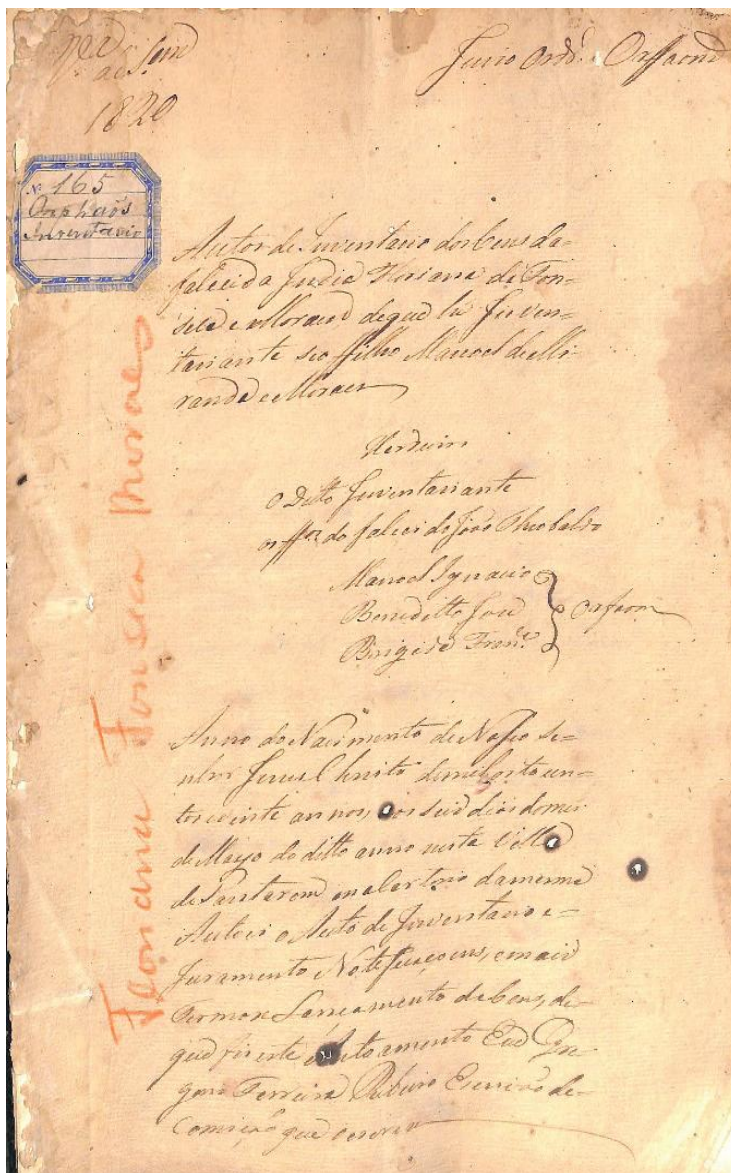 1820
Juizo Ord.º Orffaons
Nº 165
Orphaõs
Inventario
Autos de Inventario dos bens da=
falecida India Floriana de Fon=
seca e Moraes de que he Inven=
tariante seo filho Manoel de Mi=
randa e Moraes
Herdeiros
O Ditto Inventariante
os ffos do falecido João Theobaldo
Manoel Ignacio
Beneditto José
Brigida Fran.ca
Orfaons
Floriana Fonseca Moraes
Anno do Nacimento de Nosso Se=
nhor Jesus Christo de mil oito cen=
tos e vinte annos, aos seis dias do mes
de Mayo do ditto anno nesta Villa
de Santarem e no Cartorio da mesma
Autoei o Auto de Inventario e=
Juramento Notificaçoens, e mais
Termos e Lancamento de bens, de=
que fis este Autoamento Eu Gre=
gorio Ferreira Ribeiro Escrivão de=
Comição que escrevi